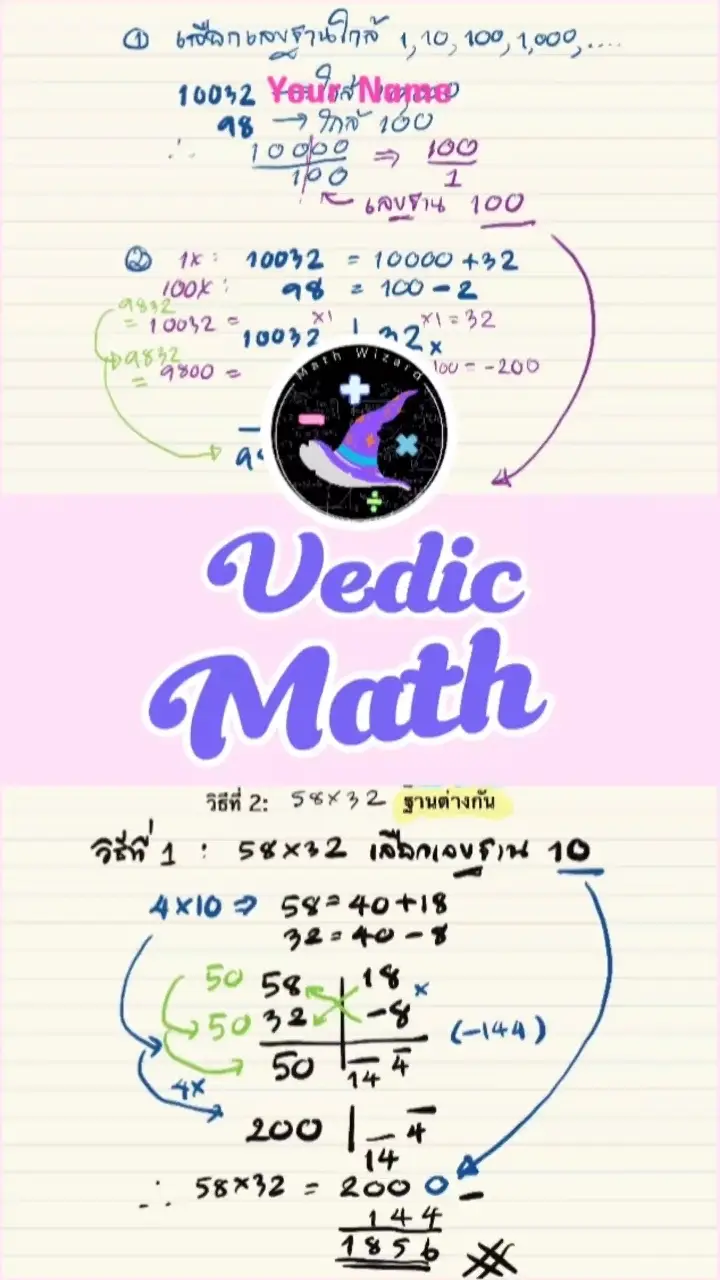 ① เลือกเลขฐานใกล้ 1, 10, 100, 1,000, ....
Your Name
10032 → ใกล้
98 → ใกล้ 100
∴ 10000 ⇒ 100
100 1
เลขฐาน 100
② 1x : 10032 = 10000 + 32
100x : 98 = 100 - 2
9832
= 10032 = 10032 x1 | 32 x1 = 32
x
9832
= 9800 = 100 = -200
Math Wizard
Vedic
Math
วิธีที่ 2: 58×32 ฐานต่างกัน
วิธีที่ 1 : 58×32 เลือกเลขฐาน 10
4×10 ⇒ 58 = 40 + 18
32 = 40 - 8
50 58 | 18 x
50 32 | -8 (-144)
50 | 14 4
4x
200 | 14 4
∴ 58×32 = 200 0 -
144
1856